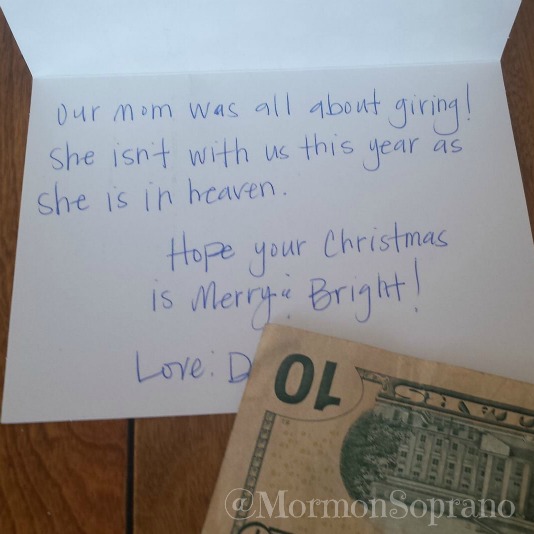 our mom was all about giving!
She isn't with us this year as
she is in heaven.
Hope your Christmas
is Merry & Bright!
Love: D
10
@MormonSoprano